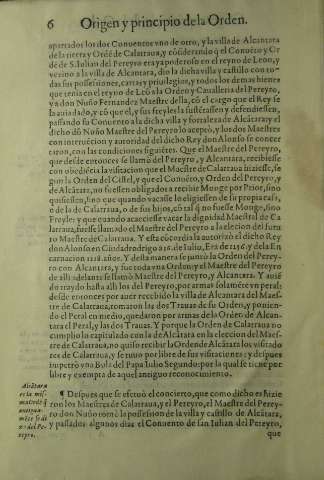 6 Origen y principio de la Orden.
apartados los dos Conuentos vno de otro, y la villa de Alcantara
de la tierra y Ordẽ de Calatraua, y cõsiderando q̃ el Conuẽto y Or
de de S. Iulian del Pereyro era ya poderoso en el reyno de Leon, y
vezino a la villa de Alcantara, dio la dicha villa y castillo con to-
das sus possessiones, cartas y priuilegios, y todos los demas bienes
que tenia en el reyno de Leõ a la Orden y Caualleria del Pereyro,
y a don Nuño Fernandez Maestre della, cõ el cargo que el Rey se
la auia dado, y cõ que el, y sus freyles la sustẽtassen y defendiessen,
passando su Conuento a la dicha villa y fortaleza de Alcãtara y el
dicho dõ Nuño Maestre del Pereyro lo aceptò, y los dos Maestres
con interuencion y autoridad del dicho Rey don Alonso se concer
taron, con las condiciones siguiẽtes. Que el Maestre del Pereyro,
que desde entonces se llamò del Pereyro, y Alcantara, recibiesse
con obediẽcia la visitacion que el Maestre de Calatraua hiziesse, se-
gun la Orden del Cistel, y que el Conuẽto, y Orden del Pereyro, y
de Alcãtara, no fuessen obligados a recibir Monge por Prior, sino
quisiessen, sino que quando vacasse lo eligiessen de su propria casa,
o de la de Calatraua, o de sus hijos, cõ tal q̃ no fuesse Monge, sino
Freyle: y que quando acaeciesse vacar la dignidad Maestral de Ca
latraua, fuesse llamado el Maestre del Pereyro a la eleccion del futu
ro Maestre de Calatraua. Y esta cõcordia la autorizò el dicho Rey
don Alonso en Ciudadrodrigo a 16. de Iulio, Era de 1256. y de la En
carnacion 1218. años. Y desta manera se juntò la Orden del Perey-
ro con Alcantara, y fue toda vna Orden y el Maestre del Pereyro
de alli adelante se llamò Maestre del Pereyro, y Alcantara. Y auiẽ
do traydo hasta alli los del Pereyro, por armas solamẽte vn peral:
desde entonces por auer recebido la villa de Alcantara del Maes-
tre de Calatraua, tomaron las dos Trauas de su Orden, y ponien-
do el Peral en medio, quedaron por armas de la Ordẽ de Alcan-
tara el Peral, y las dos Trauas. Y porque la Orden de Calatraua no
cumplio lo capitulado con la de Alcãtara en la eleccion del Maes-
tre de Calatraua, no quiso recibir la Ordẽ de Alcãtara los visitado
res de Calatraua, y se tuuo por libre de sus visitaciones: y despues
impetrò vna Bula del Papa Iulio Segundo: por la qual se tiene por
libre y exempta de aquel antiguo reconocimiento.
Alcãtara
es la mis-
ma
antigua-
mẽte se di
xo del Pe-
reyro.
¶ Despues que se efetuò el concierto, que como dicho es hizie
ron los Maestres de Calatraua, y el Pereyro, el Maestre del Pereyro
don Nuño tomò la possession de la villa y castillo de Alcãtara,
y passados algunos dias el Conuento de san Iulian del Pereyro,
que